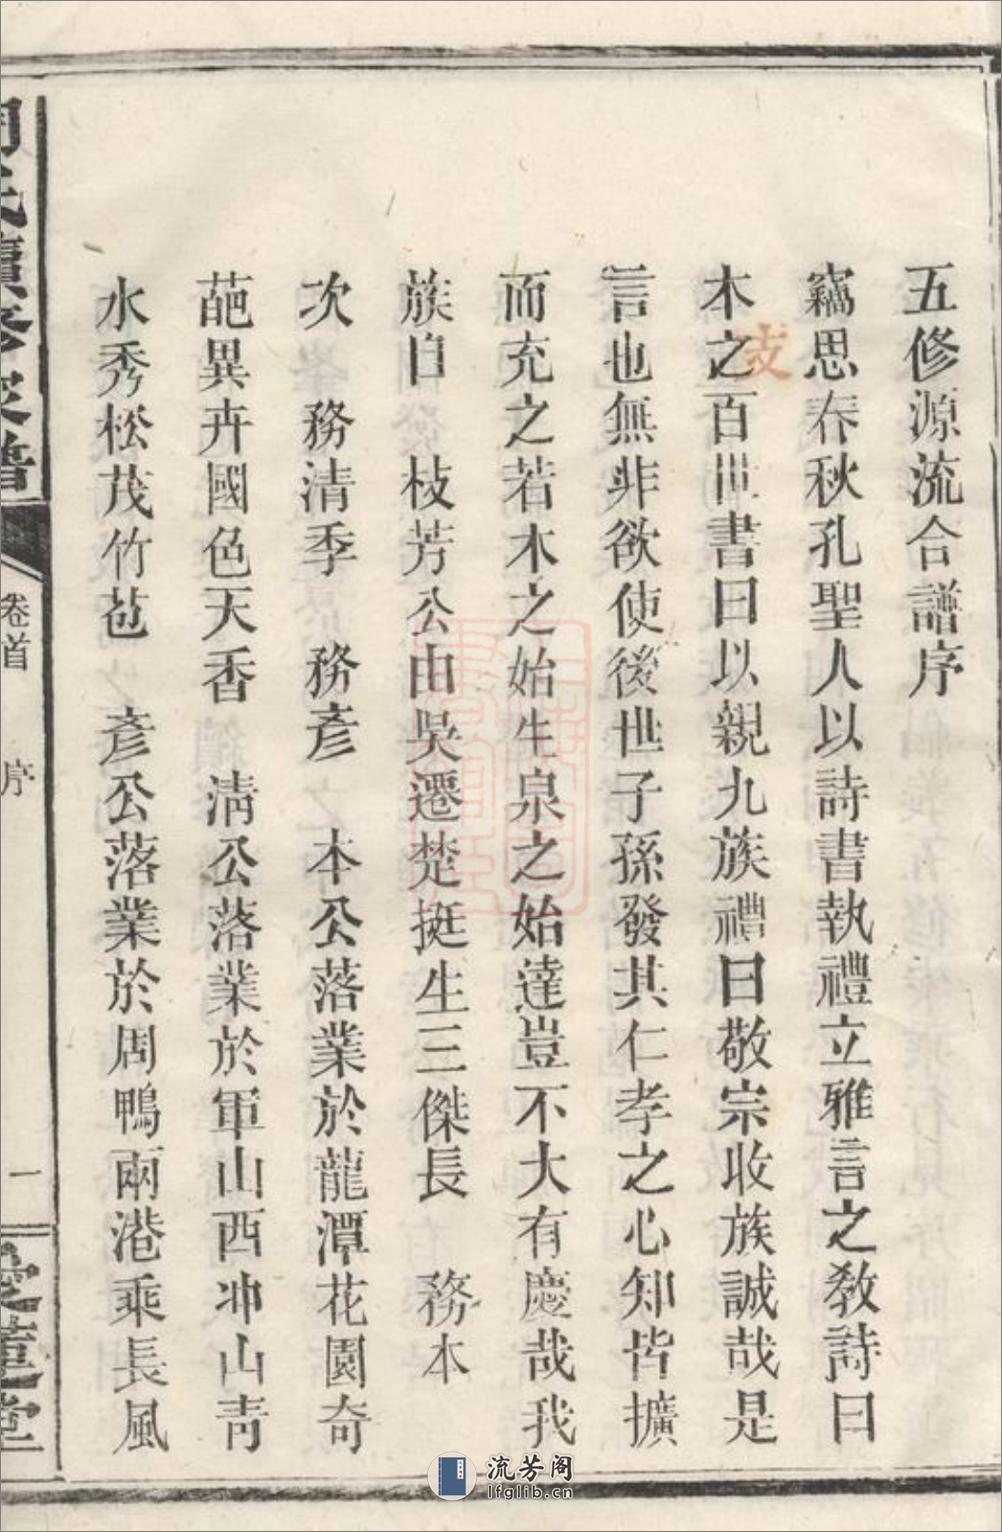 五修源流合譜序
竊思春秋孔聖人以詩書執禮立雅言之教詩曰
本之百世書曰以親九族禮曰敬宗收族誠哉是
支
言也無非欲使後世子孫發其仁孝之心知皆擴
而充之若木之始生泉之始達豈不大有慶哉我
族自 枝芳公由吳遷楚挺生三傑長 務本
次 務清季 務彥 本公落業於龍潭花園奇
葩異卉國色天香 清公落業於軍山西冲山青
水秀松茂竹苞 彥公落業於周鴨兩港乘長風
周氏續修家譜
卷首 序
一
愛蓮堂
流芳阁
lfglib.cn